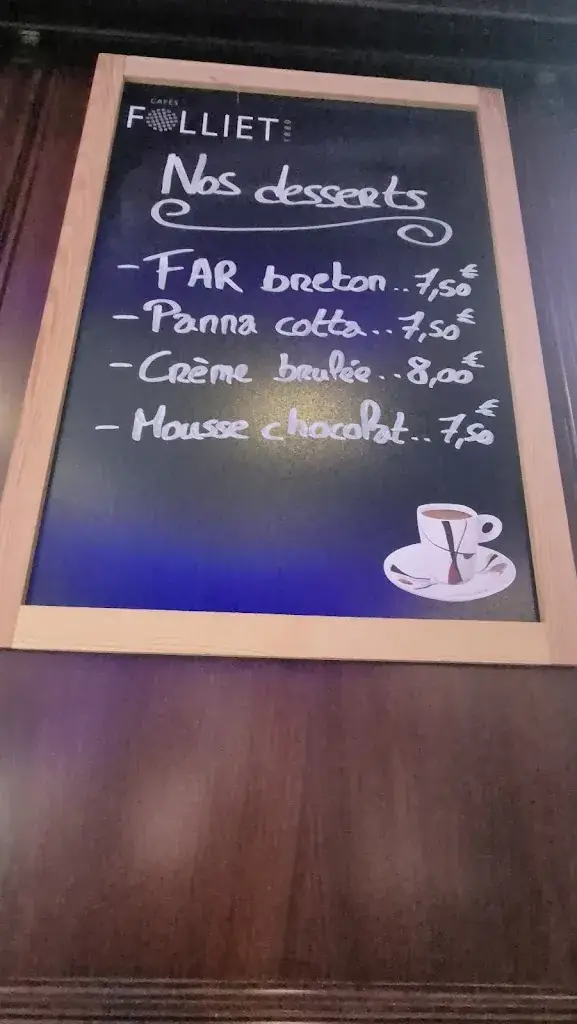 CAFÉS
FOLLIET
1880
Nos desserts
- FAR breton.. 7,50€
- Panna cotta.. 7,50€
- Crème brulée.. 8,00€
- Mousse chocolat.. 7,50€